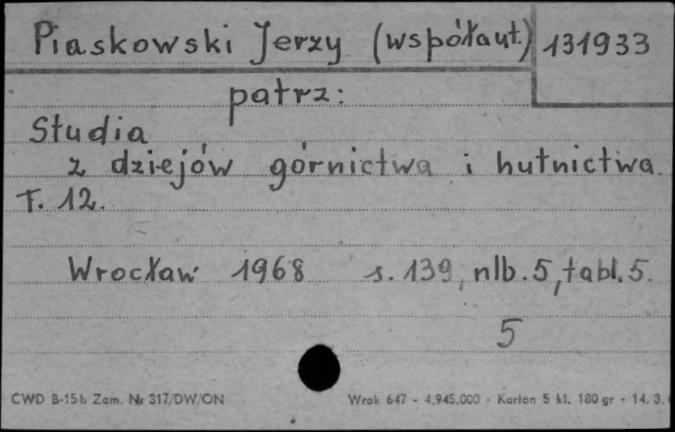 Piaskowski Jerzy (współaut.) 131933
patrz:
Studia
z dziejów górnictwa i hutnictwa.
T. 12.
Wrocław 1968 s. 139, nlb. 5, tabl. 5.
5
CWD B-15b Zam. Nr 317/DW/ON Wrak 647 - 4.945.000 - Karton 5 kl. 180 gr - 14. 3.